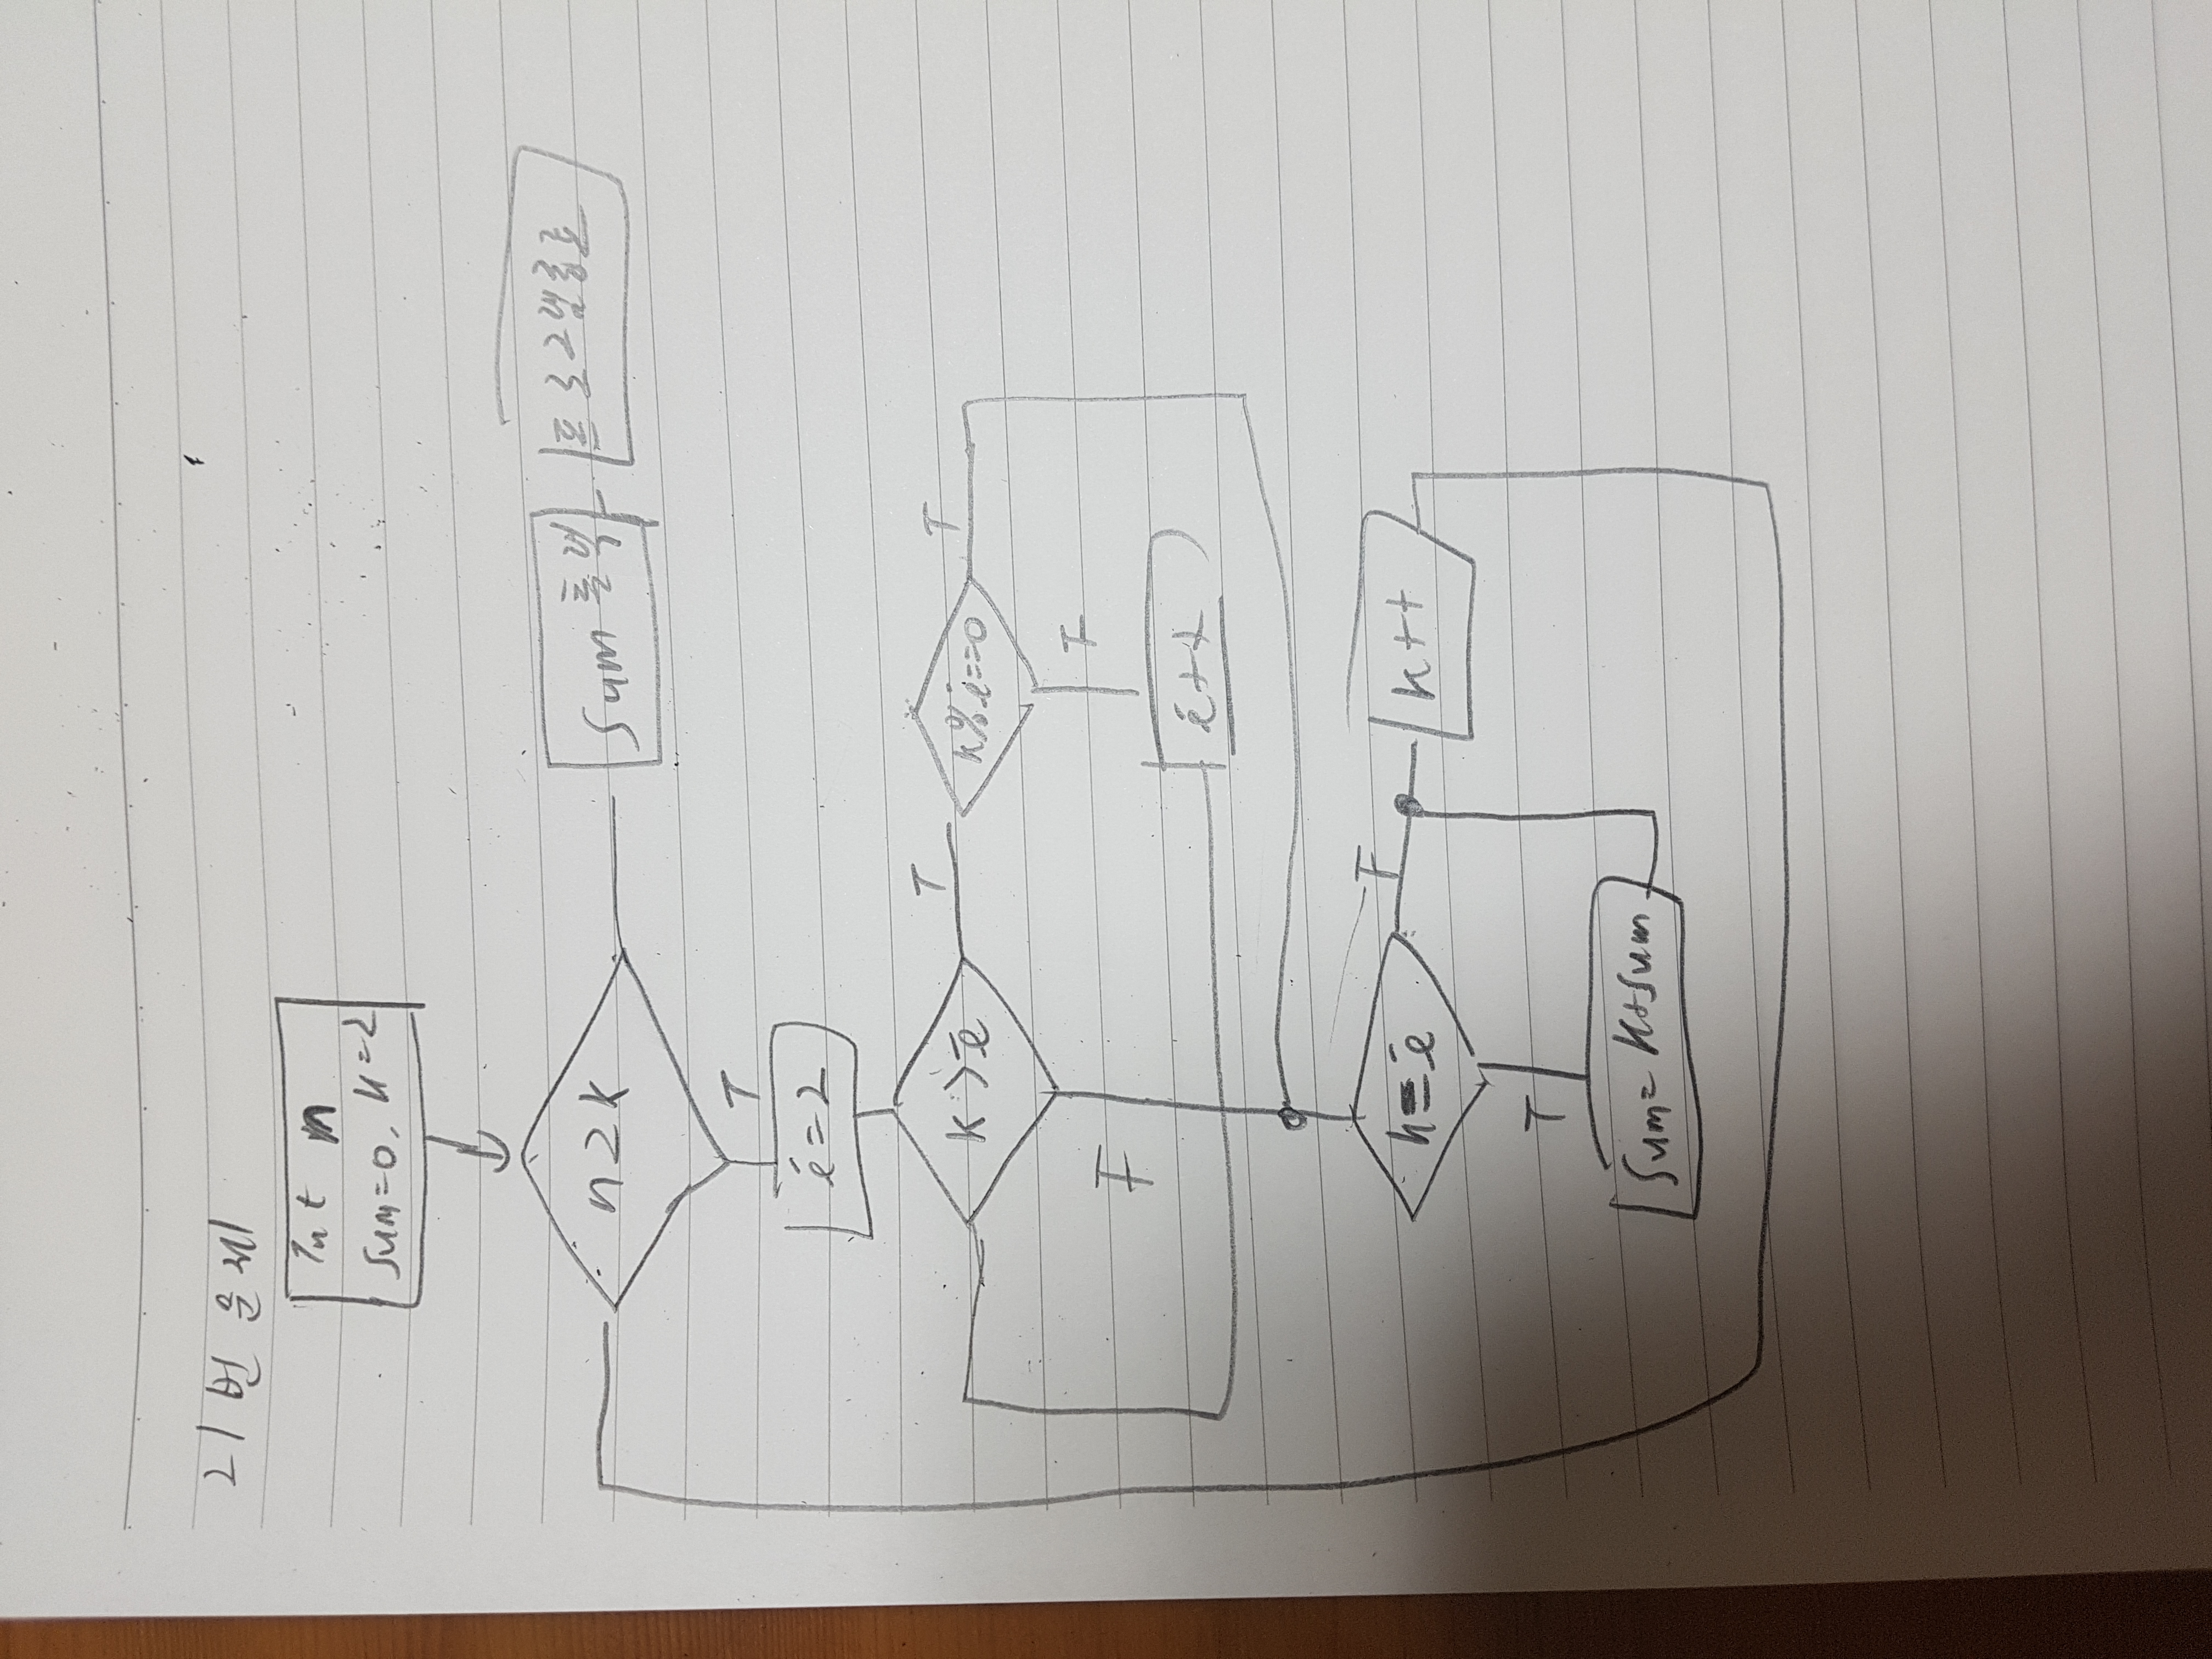 21번 문제
Int n
Sum=0, k=2
n≥k
Sum 출력
프로그램종료
T
i=2
k>i
T
k%i==0
T
F
F
i++
k=i
F
k++
T
Sum=k+Sum